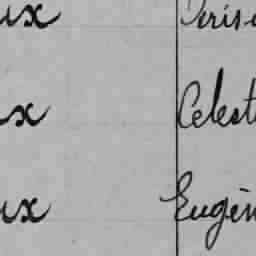 ux Deris
ux Celest
ux Eugèn